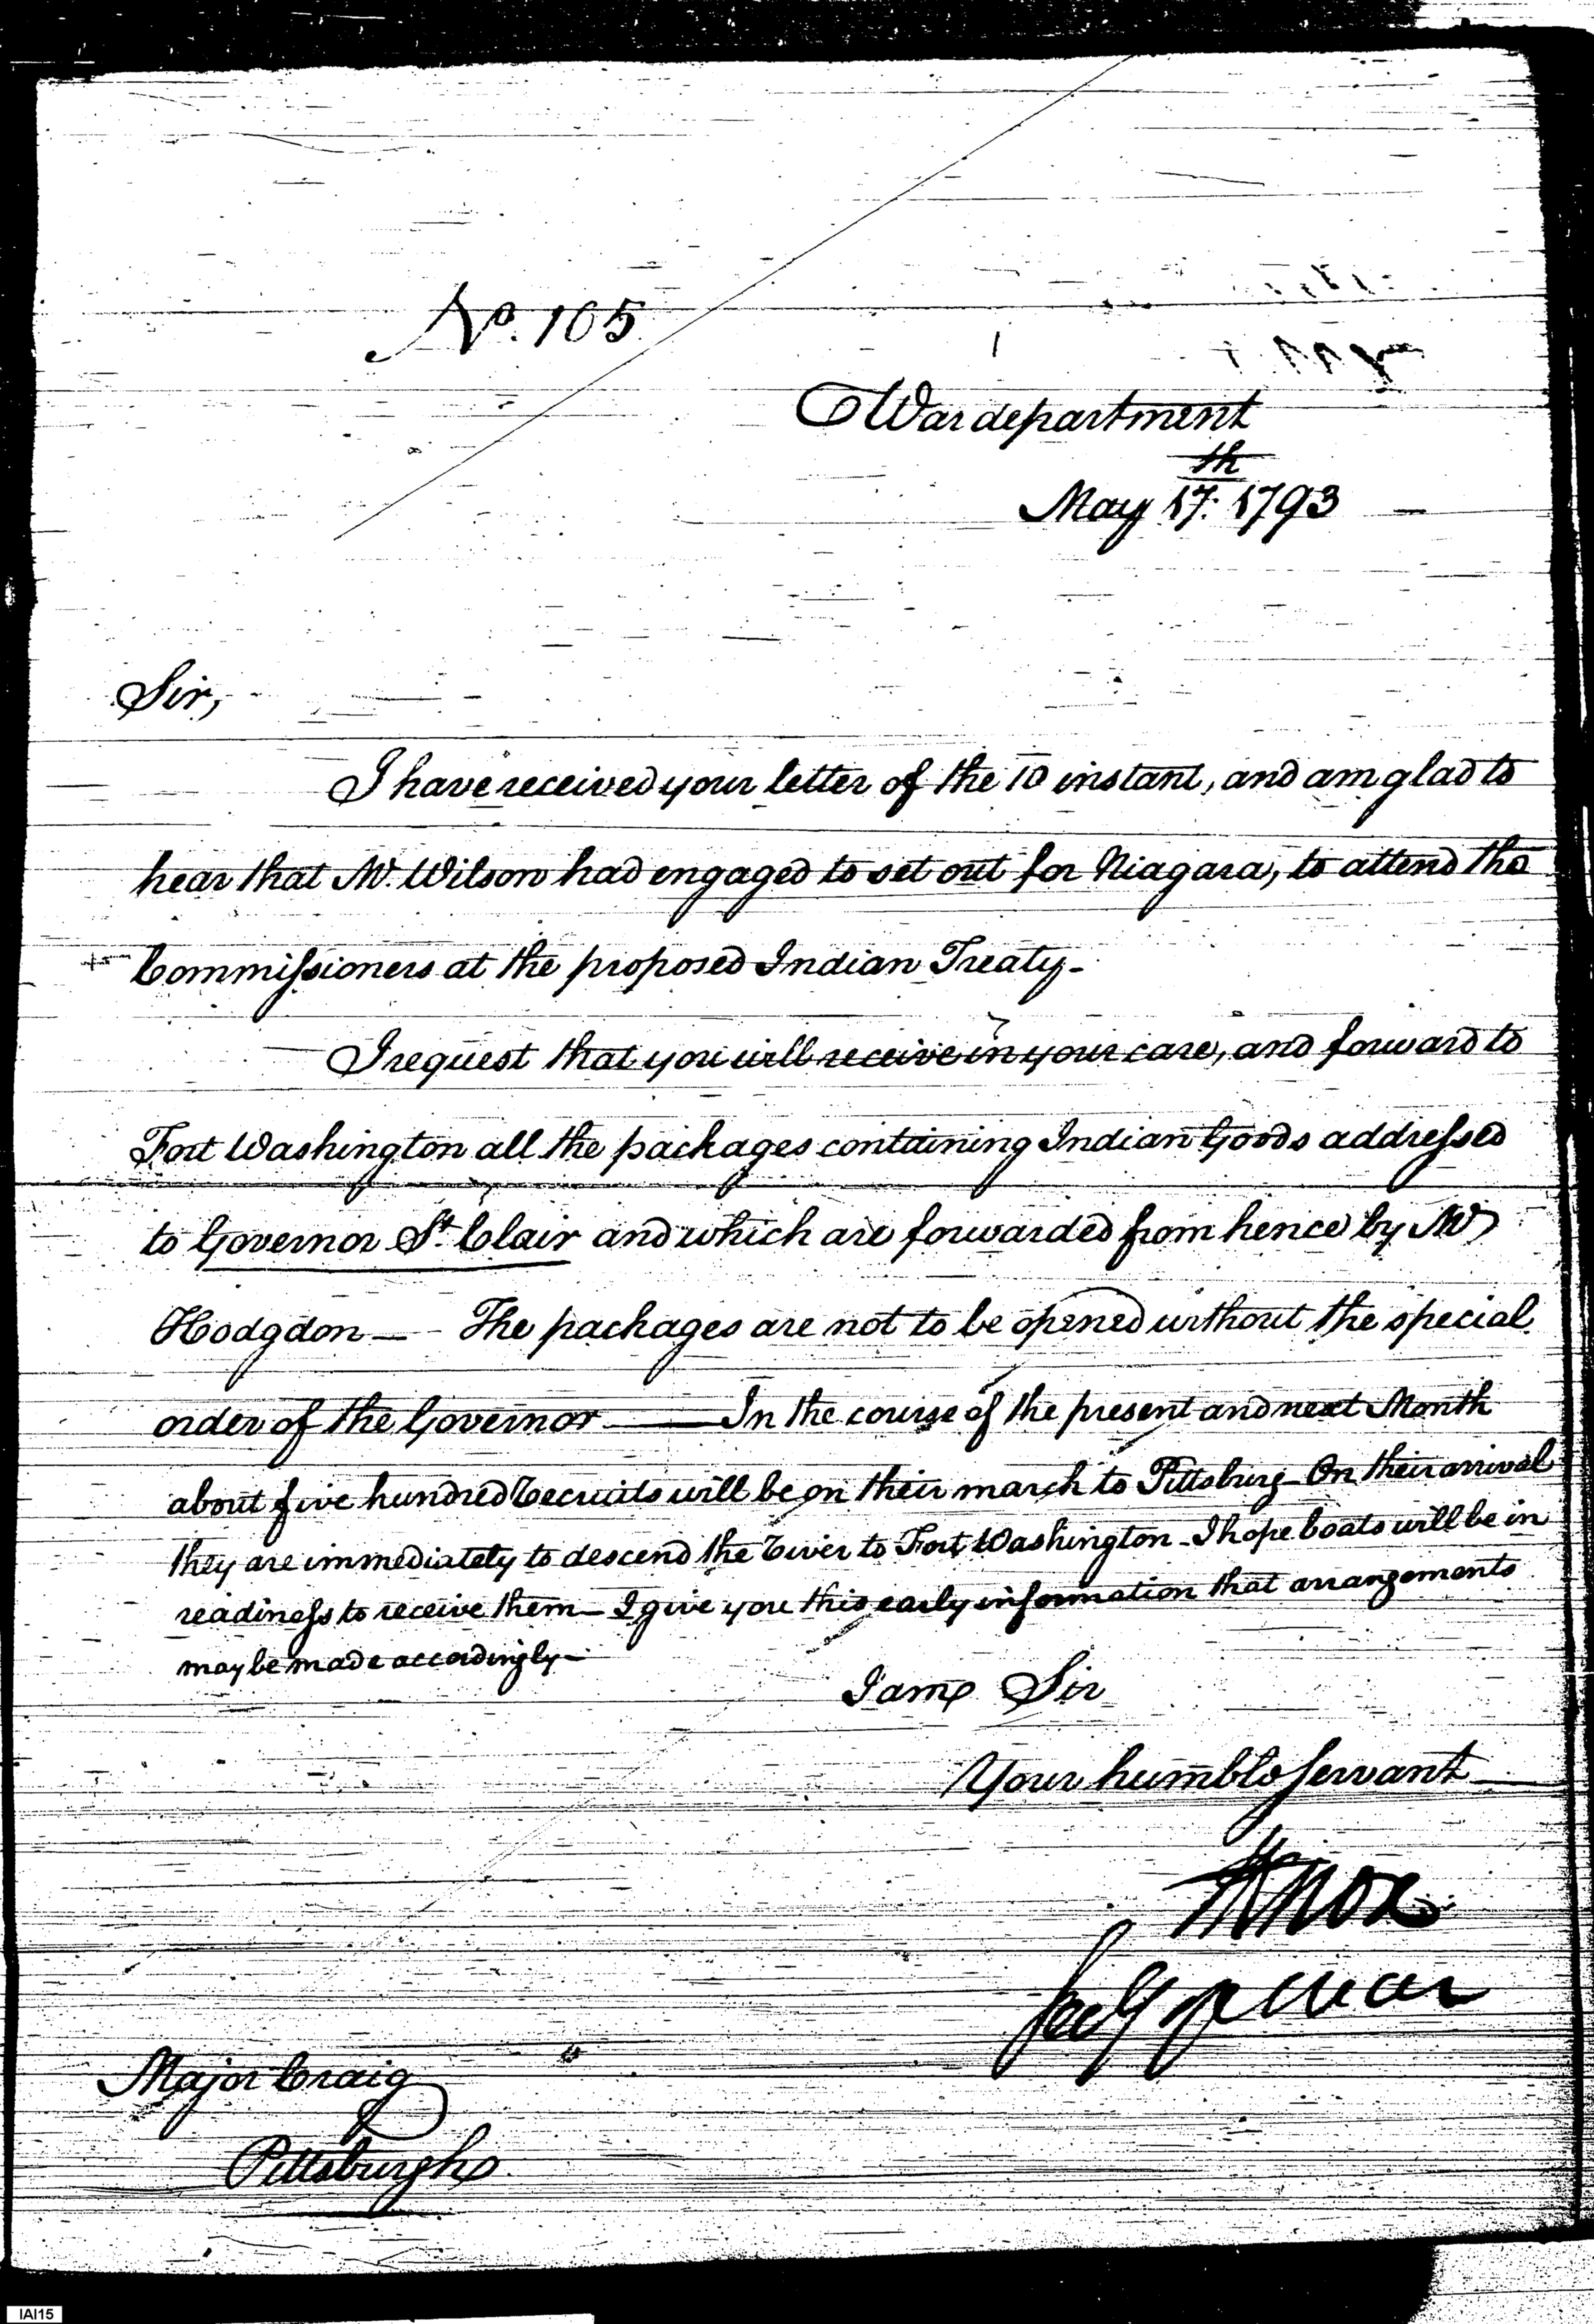 No. 105
War department
May 17th. 1793
Sir,
I have received your letter of the 10 instant, and am glad to
hear that Mr. Wilson had engaged to set out for Niagara, to attend the
Commissioners at the proposed Indian Treaty-
I request that you will receive in your care, and forward to
Fort Washington all the packages containing Indian Goods addressed
to Governor St. Clair and which are forwarded from hence by Mr
Hodgdon — The packages are not to be opened without the special
order of the Governor — In the course of the present and next Month
about five hundred recruits will be on their march to Pittsburg - On their arrival
they are immediately to descend the river to Fort Washington - I hope boats will be in
readiness to receive them - I give you this early information that arrangements
may be made accordingly -
I am Sir
Your humble Servant
HKnox
Secy of War
Major Craig
Pittsburgh
IAI15